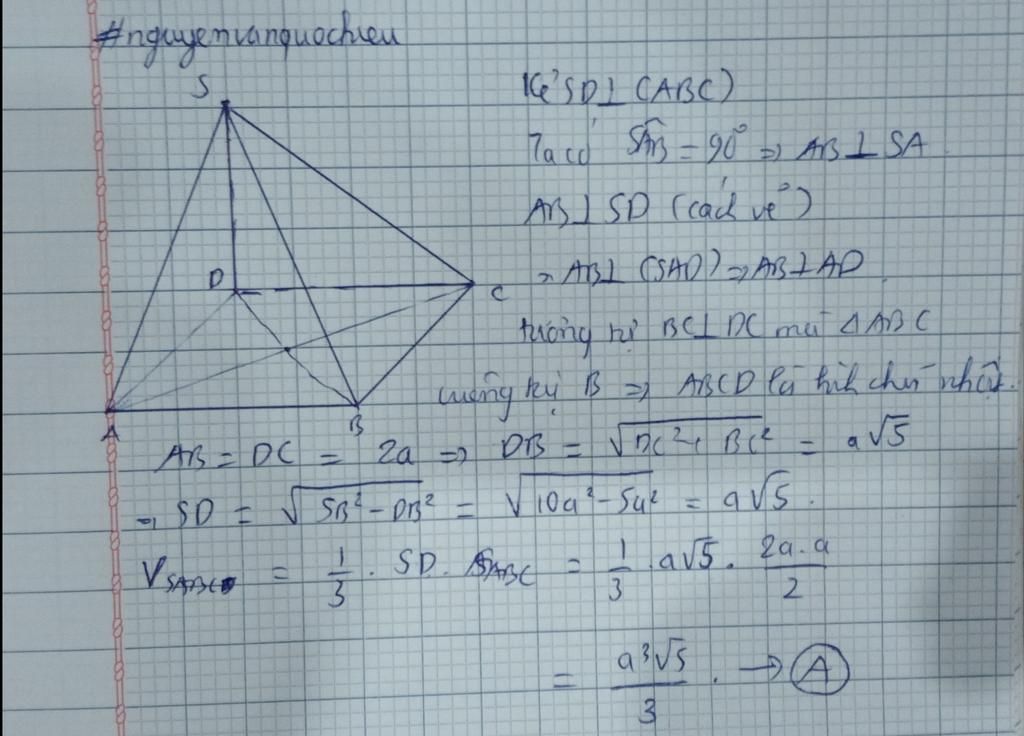 #nguyenvanquochieu
S
Kẻ SD⊥(ABC)
Ta có SÂB = 90° ⇒ AB⊥SA
AB⊥SD (cách vẽ)
⇒ AB⊥(SAD) ⇒ AB⊥AD
D
C
tương tự BC⊥DC mà ΔABC
vuông tại B ⇒ ABCD là hình chữ nhật.
A
B
AB = DC = 2a ⇒ DB = √(DC²+BC²) = a√5
⇒ SD = √(SB²-DB²) = √(10a²-5a²) = a√5.
V_SABC = 1/3 . SD. S_ABC = 1/3 . a√5 . 2a.a/2
= a³√5/3 . → A